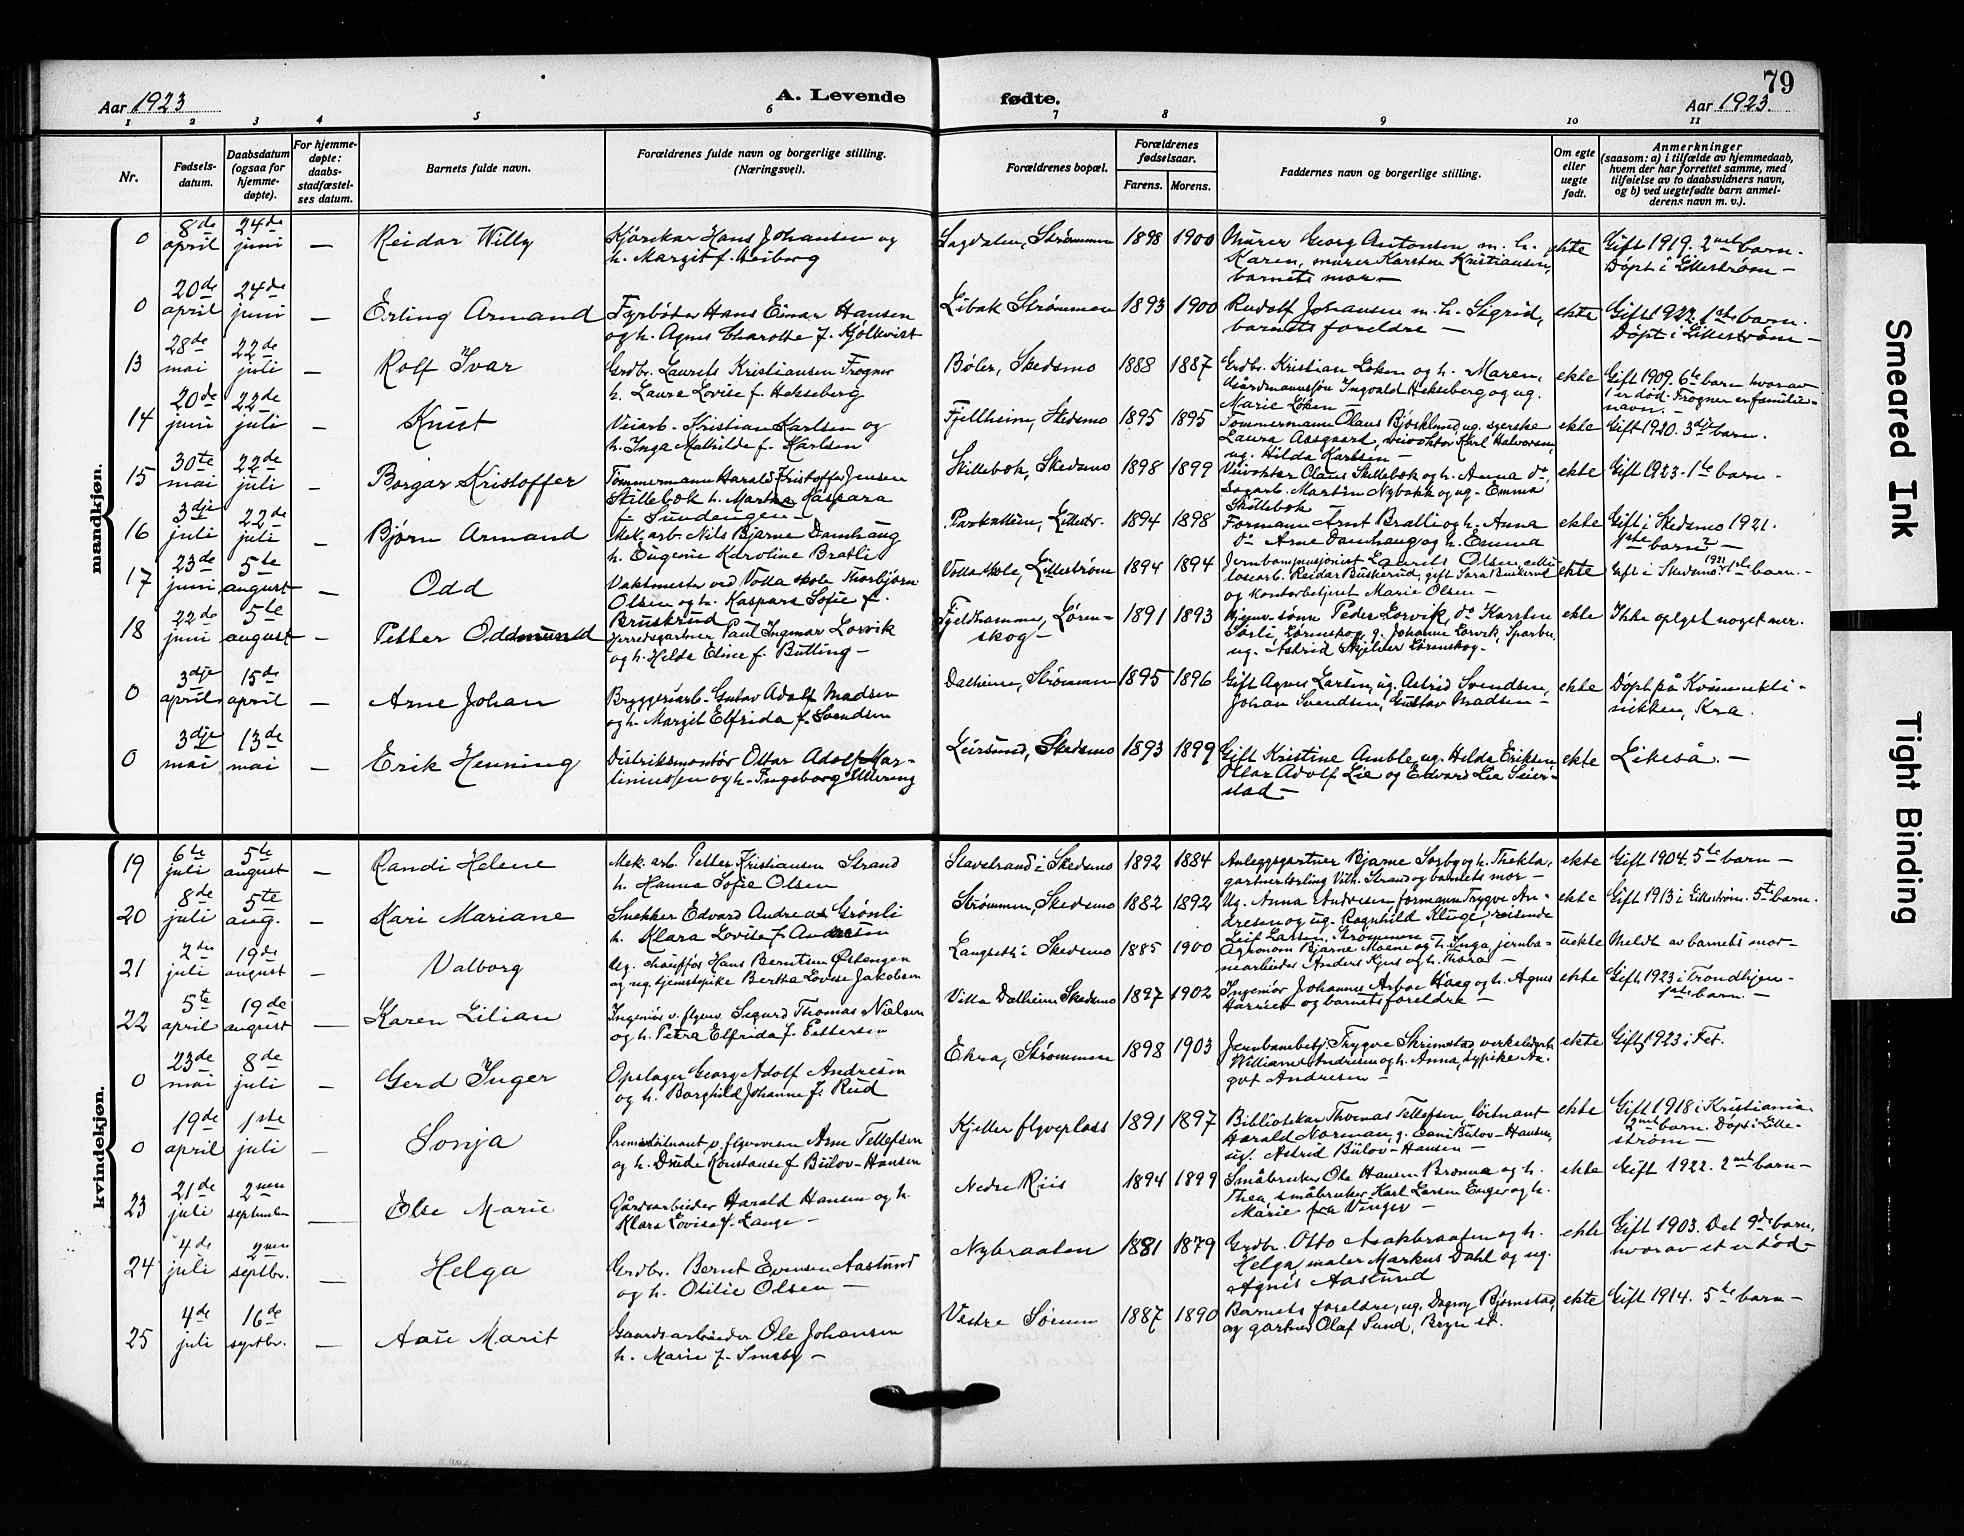 79
Aar 1923
A. Levende
fødte.
Aar 1923.
1 2 3 4 5 6 7 8 9 10 11
Nr.
Fødsels-
datum.
Daabsdatum
(ogsaa for
hjemme-
døpte).
For hjemme-
døpte:
daabs-
stadfæstel-
ses datum.
Barnets fulde navn.
Forældrenes fulde navn og borgerlige stilling.
(Næringsvei).
Forældrenes bopæl.
Forældrenes
fødselsaar.
Farens. Morens.
Faddernes navn og borgerlige stilling.
Om egte
eller
uegte
født.
Anmerkninger
(saasom: a) i tilfælde av hjemmedaab,
hvem der har forrettet samme, med
tilføielse av to daabsvidners navn,
og b) ved uegtefødte barn anmel-
derens navn m. v.).
mandkjøn.
0 8de april 24de juni — Reidar Willy
Kjørekar Hans Johansen og
h. Margit f. Heiberg
Sagdalen, Strømmen 1898 1900
Murer Georg Antonsen m. h.
Karen, murer Karsten Kristiansen,
barnets mor —
ekte
Gift 1919. 2net barn.
Døpt i Lillestrøm —
0 20de april 24de juni — Erling Armand
Fyrbøter Hans Einar Hansen
og h. Agnes Charlotte f. Kjølkvist
Libak Strømmen 1893 1900
Rudolf Johansen m. h. Sigrid,
barnets foreldre —
ekte
Gift 1922. 1ste barn.
Døpt i Lillestrøm —
13 28de mai 22de juli — Rolf Ivar
Grdbr. Laurits Kristiansen Frogner
h. Laura Lovise f. Hekseberg
Bøler, Skedsmo 1888 1887
Grdbr. Kristian Løken og h. Maren,
Gårdmannssøn Ingvald Hekseberg og ug.
Marie Løken —
ekte
Gift 1909. 6te barn hvorav
1 er død. Frogner er familie-
navn. —
14 20de juni 22de juli — Knut
Veiarb. Kristian Karlsen og
h. Inga Mathilde f. Karlsen
Fjellheim, Skedsmo 1895 1895
Tømmermann Olaus Bjørklund ug. syerske
Laura Aasgaard, veivokter Karl Halvorsen,
ug. Hilda Karlsen —
ekte
Gift 1920. 3dje barn.
15 30te mai 22de juli - Borgar Kristoffer
Tømmermann Harald Kristoffer Jensen
Skillebæk h. Martha Kaspara
f. Sundengen —
Skillebek, Skedsmo 1898 1899
Veivokter Olaus Skillebek og h. Anna do,
Sagarb. Martin Nybakk og ug. Emma
Skillebek —
ekte
Gift 1923. 1te barn.
16 3dje juli 22de juli — Bjørn Armand
Mek. arb. Nils Bjarne Damhaug
h. Eugenie Karoline Bratli
Parkalleen, Lillestr. 1894 1898
Formann Arnt Bratli og h. Anna
do Arne Damhaug og h. Emma
ekte
Gift i Skedsmo 1921.
1ste barn —
17 23de juni 5te august — Odd
Vaktmester ved Volla skole Thorbjørn
Olsen og h. Kaspara Sofie f.
Buskerud
Volla skole, Lillestrøm 1894 1894
Jernbanepensjonist Laurits Olsen, cellu-
losearb. Reidar Buskerud, gift Sara Buskerud
og kontorbetjent Marie Olsen —
ekte
Gift i Skedsmo 1921 1ste barn. —
18 22de juni 5te august — Petter Oddmund
Herredsgartner Paul Ingmar Lorvik
og h. Helda Eline f. Butling —
Fjeldhamme, Løren-
skog —
1891 1893
Bjenv. sønn Peder Lorvik, do Karsten
Sørli, Lørenskog, g. Johanne Lorvik, Sparbu,
ug. Astrid Skjelver Lørenskog.
ekte
Ikke oplyst noget mer.
0 3dje april 15de april — Arne Johan
Bryggeriarb. Gustav Adolf Madsen
og h. Margit Elfrida f. Svendsen
Dalheim, Strømmen 1895 1896
Gift Agnes Larsen, ug. Astrid Svendsen,
Johan Svendsen, Gustav Madsen —
ekte
Døpt på Kvinnekli-
nikken, Kra.
0 3dje mai 13de mai — Erik Henning
Distriktsmontør Ottar Adolf Mar-
tiniussen og h. Ingeborg Ullereng
Leirsund, Skedsmo 1893 1899
Gift Kristine Amble, ug. Hilda Eriksen,
Ottar Adolf Lie og Edvard Lie Seier-
stad —
ekte
Likeså. —
kvindekjøn.
19 6te juli 5te august — Randi Helene
Mek. arb. Petter Kristiansen Strand
h. Hanna Sofie Olsen
Slavestrand i Skedsmo 1892 1884
Anleggsgartner Bjarne Sørby og h. Thekla,
gartnerlærling Vilh. Strand og barnets mor —
ekte
Gift 1904. 5te barn —
20 8de juli 5te aug. — Kari Mariane
Snekker Edvard Andreas Grønli
h. Klara Lovise f. Andersen
Strømmen, Skedsmo 1882 1892
Ug. Anna Andresen, formann Trygve An-
dresen og ug. Ragnhild Kluge, reisende
Leif Larsen, Strømmen
ekte
Gift 1913 i Lillestrøm. 5te barn.
21 2den juli 19de august — Valborg
Ug. chauffør Hans Berntsen Østengen
og ug. tjenestepike Bertha Lovise Jakobsen
Langseth i Skedsmo 1885 1900
Agronom Bjarne Moene og h. Inga, jernba-
nearbeider Anders Kjus og h. Thora —
uekte
Meldt av barnets mor —
22 5te april 19de august — Karen Lilian
Ingeniør v. flyvev. Sigurd Thomas Nielsen
og h. Petra Elfrida f. Pettersen
Villa Dalheim Skedsmo 1897 1902
Ingeniør Johannes Arboe Høeg og h. Agnes
Harriet og barnets foreldre —
ekte
Gift 1923 i Trondhjem —
1ste barn. —
0 23de mai 8de juli — Gerd Inger
Opslager Georg Adolf Andresen
og h. Borghild Johanne f. Rud
Ekra, Strømmen 1898 1903
Jernbanebetj. Trygve Skrimstad verkseier
William Andresen og h. Anna, sypike Aa-
got Andresen —
ekte
Gift 1923 i Fet.
0 19de april 1ste juli — Sonja
Premierløitnant v. flyvevesen Arne Tellefsen
og h. Drude Konstanse f. Bülov-Hansen
Kjeller flyveplass 1891 1897
Bibliotekar Thomas Tellefsen, løitnant
Harald Norman, g. Emi Bülov-Hansen,
ug. Astrid Bülov-Hansen —
ekte
Gift 1918 i Kristiania.
2net barn. Døpt i Lille-
strøm —
23 21de juli 2nen september — Else Marie
Gårdsarbeider Harald Hansen og h.
Klara Lovise f. Lange —
Nedre Riis 1894 1899
Småbruker Ole Hansen Brenna og h.
Thea, småbruker Karl Larsen Enger og h.
Marie fra Vinger —
ekte
Gift 1922. 2net barn —
24 4de juli 2nen septbr. — Helga
Grdbr. Bernt Evensen Aaslund
og h. Otilie Olsen —
Nybraaten 1881 1879
Grdbr. Otto Asakbraaten og h.
Helga, maler Markus Dahl og ug.
Agnes Aaslund
ekte
Gift 1903. Det 9de barn,
hvorav et er død —
25 4de juli 16de septbr. — Aase Marit
Gaardsarbeider Ole Johansen
h. Marie f. Smeby —
Vestre Sørum 1887 1890
Barnets foreldre, ug. Dagny Bjørnstad
og gartner Olaf Sund, Bryn st.
ekte
Gift 1914. 5te barn —
Smeared Ink
Tight Binding